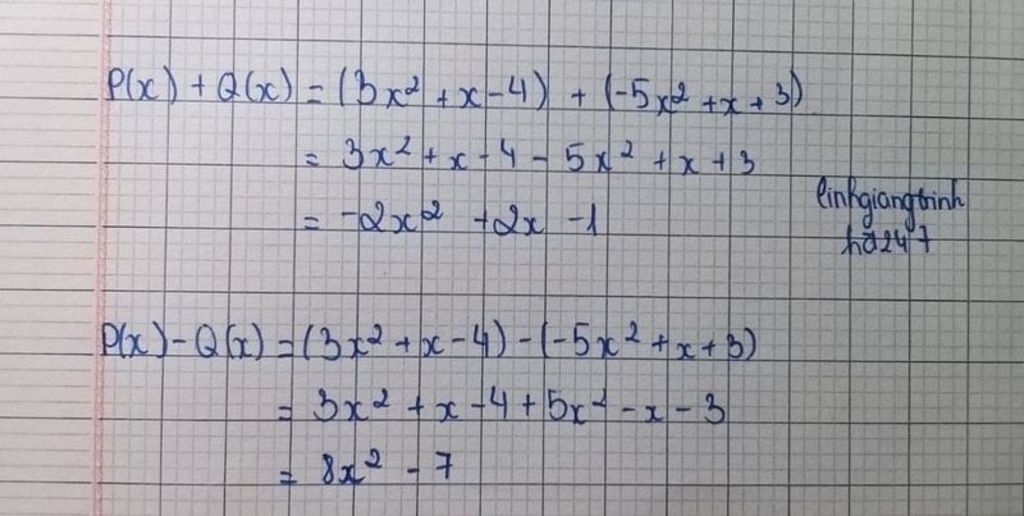 P(x) + Q(x) = (3x² + x - 4) + (-5x² + x + 3)
= 3x² + x - 4 - 5x² + x + 3
= -2x² + 2x - 1
linhgiangtrinh
hd247
P(x) - Q(x) = (3x² + x - 4) - (-5x² + x + 3)
= 3x² + x - 4 + 5x² - x - 3
= 8x² - 7